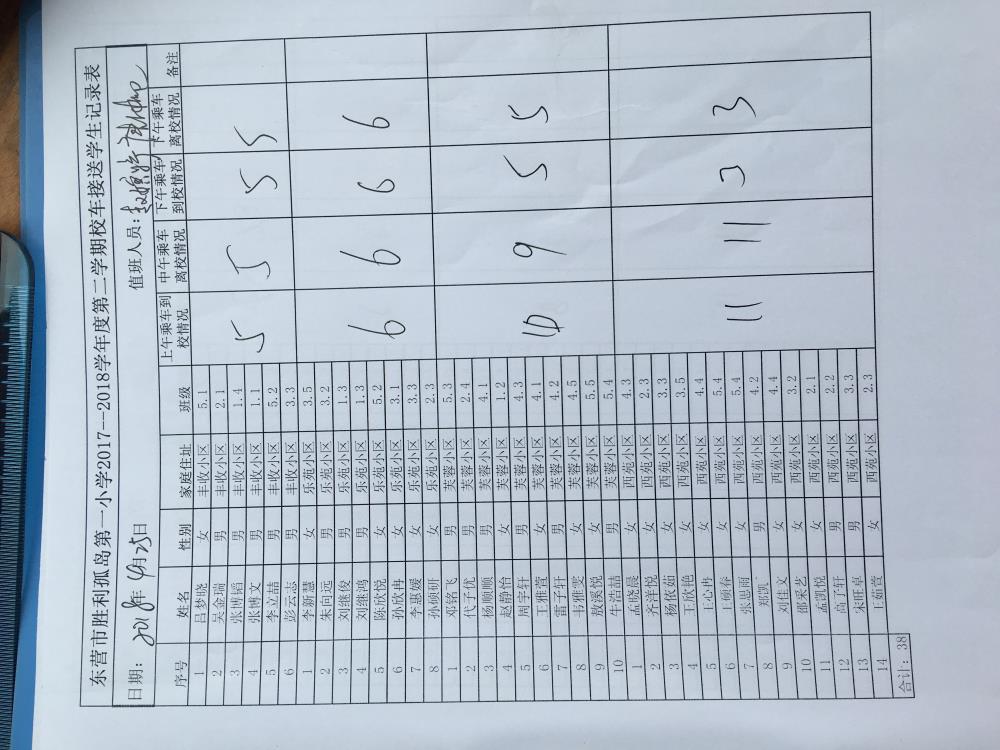 东营市胜利孤岛第一小学2017--2018学年度第二学期校车接送学生记录表
日期: 2018年 4月25日 值班人员:
序号 姓名 性别 家庭住址 班级 上午乘车到校情况 中午乘车离校情况 下午乘车到校情况 下午乘车离校情况 备注
1 吕梦晓 女 丰收小区 5.1 5 5 5 5
2 吴金瑞 男 丰收小区 2.1
3 张博韬 男 丰收小区 1.4
4 张博文 男 丰收小区 1.1
5 李立喆 男 丰收小区 5.2
6 彭云志 男 丰收小区 3.3
1 李新慧 女 乐苑小区 3.5 6 6 6 6
2 朱向远 男 乐苑小区 3.2
3 刘继俊 男 乐苑小区 1.3
4 刘继鸿 男 乐苑小区 1.3
5 陈欣悦 女 乐苑小区 5.2
6 孙欣冉 女 乐苑小区 3.1
7 李惠媛 女 乐苑小区 3.3
8 孙倾妍 女 乐苑小区 2.3
1 邓铭飞 男 芙蓉小区 5.3 10 9 5 5
2 代子优 男 芙蓉小区 2.4
3 杨顺顺 男 芙蓉小区 4.1
4 赵静怡 女 芙蓉小区 1.2
5 周宇轩 男 芙蓉小区 4.3
6 王雅萱 女 芙蓉小区 4.1
7 雷子轩 男 芙蓉小区 4.2
8 韦雅雯 女 芙蓉小区 4.5
9 敖奚悦 女 芙蓉小区 5.5
10 牛浩喆 男 芙蓉小区 5.4
1 孟晓晨 女 西苑小区 4.3 11 11 3 3
2 齐洋悦 女 西苑小区 2.3
3 杨依茹 女 西苑小区 3.3
4 王欣艳 女 西苑小区 3.5
5 王心冉 女 西苑小区 4.4
6 王硕春 女 西苑小区 5.4
7 张思雨 女 西苑小区 5.4
8 郑凯 男 西苑小区 4.2
9 刘佳文 女 西苑小区 4.4
10 邵采艺 女 西苑小区 3.2
11 孟凯悦 女 西苑小区 2.1
12 高子轩 男 西苑小区 2.2
13 宋旺卓 男 西苑小区 3.3
14 王茹萱 女 西苑小区 2.3
合计: 38